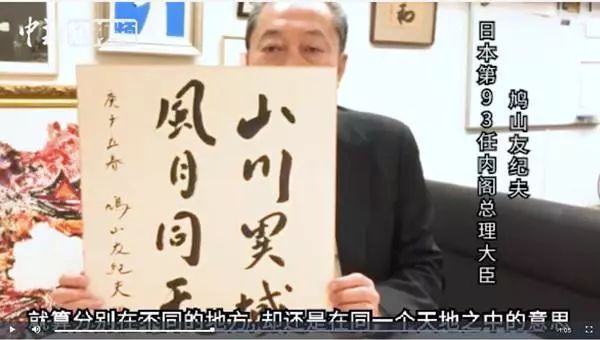 鸠山友纪夫
日本第93任内阁总理大臣
和
山川異域
風月同天
庚子立春 鳩山友紀夫
就算分别在不同的地方,却还是在同一个天地之中的意思
1:05